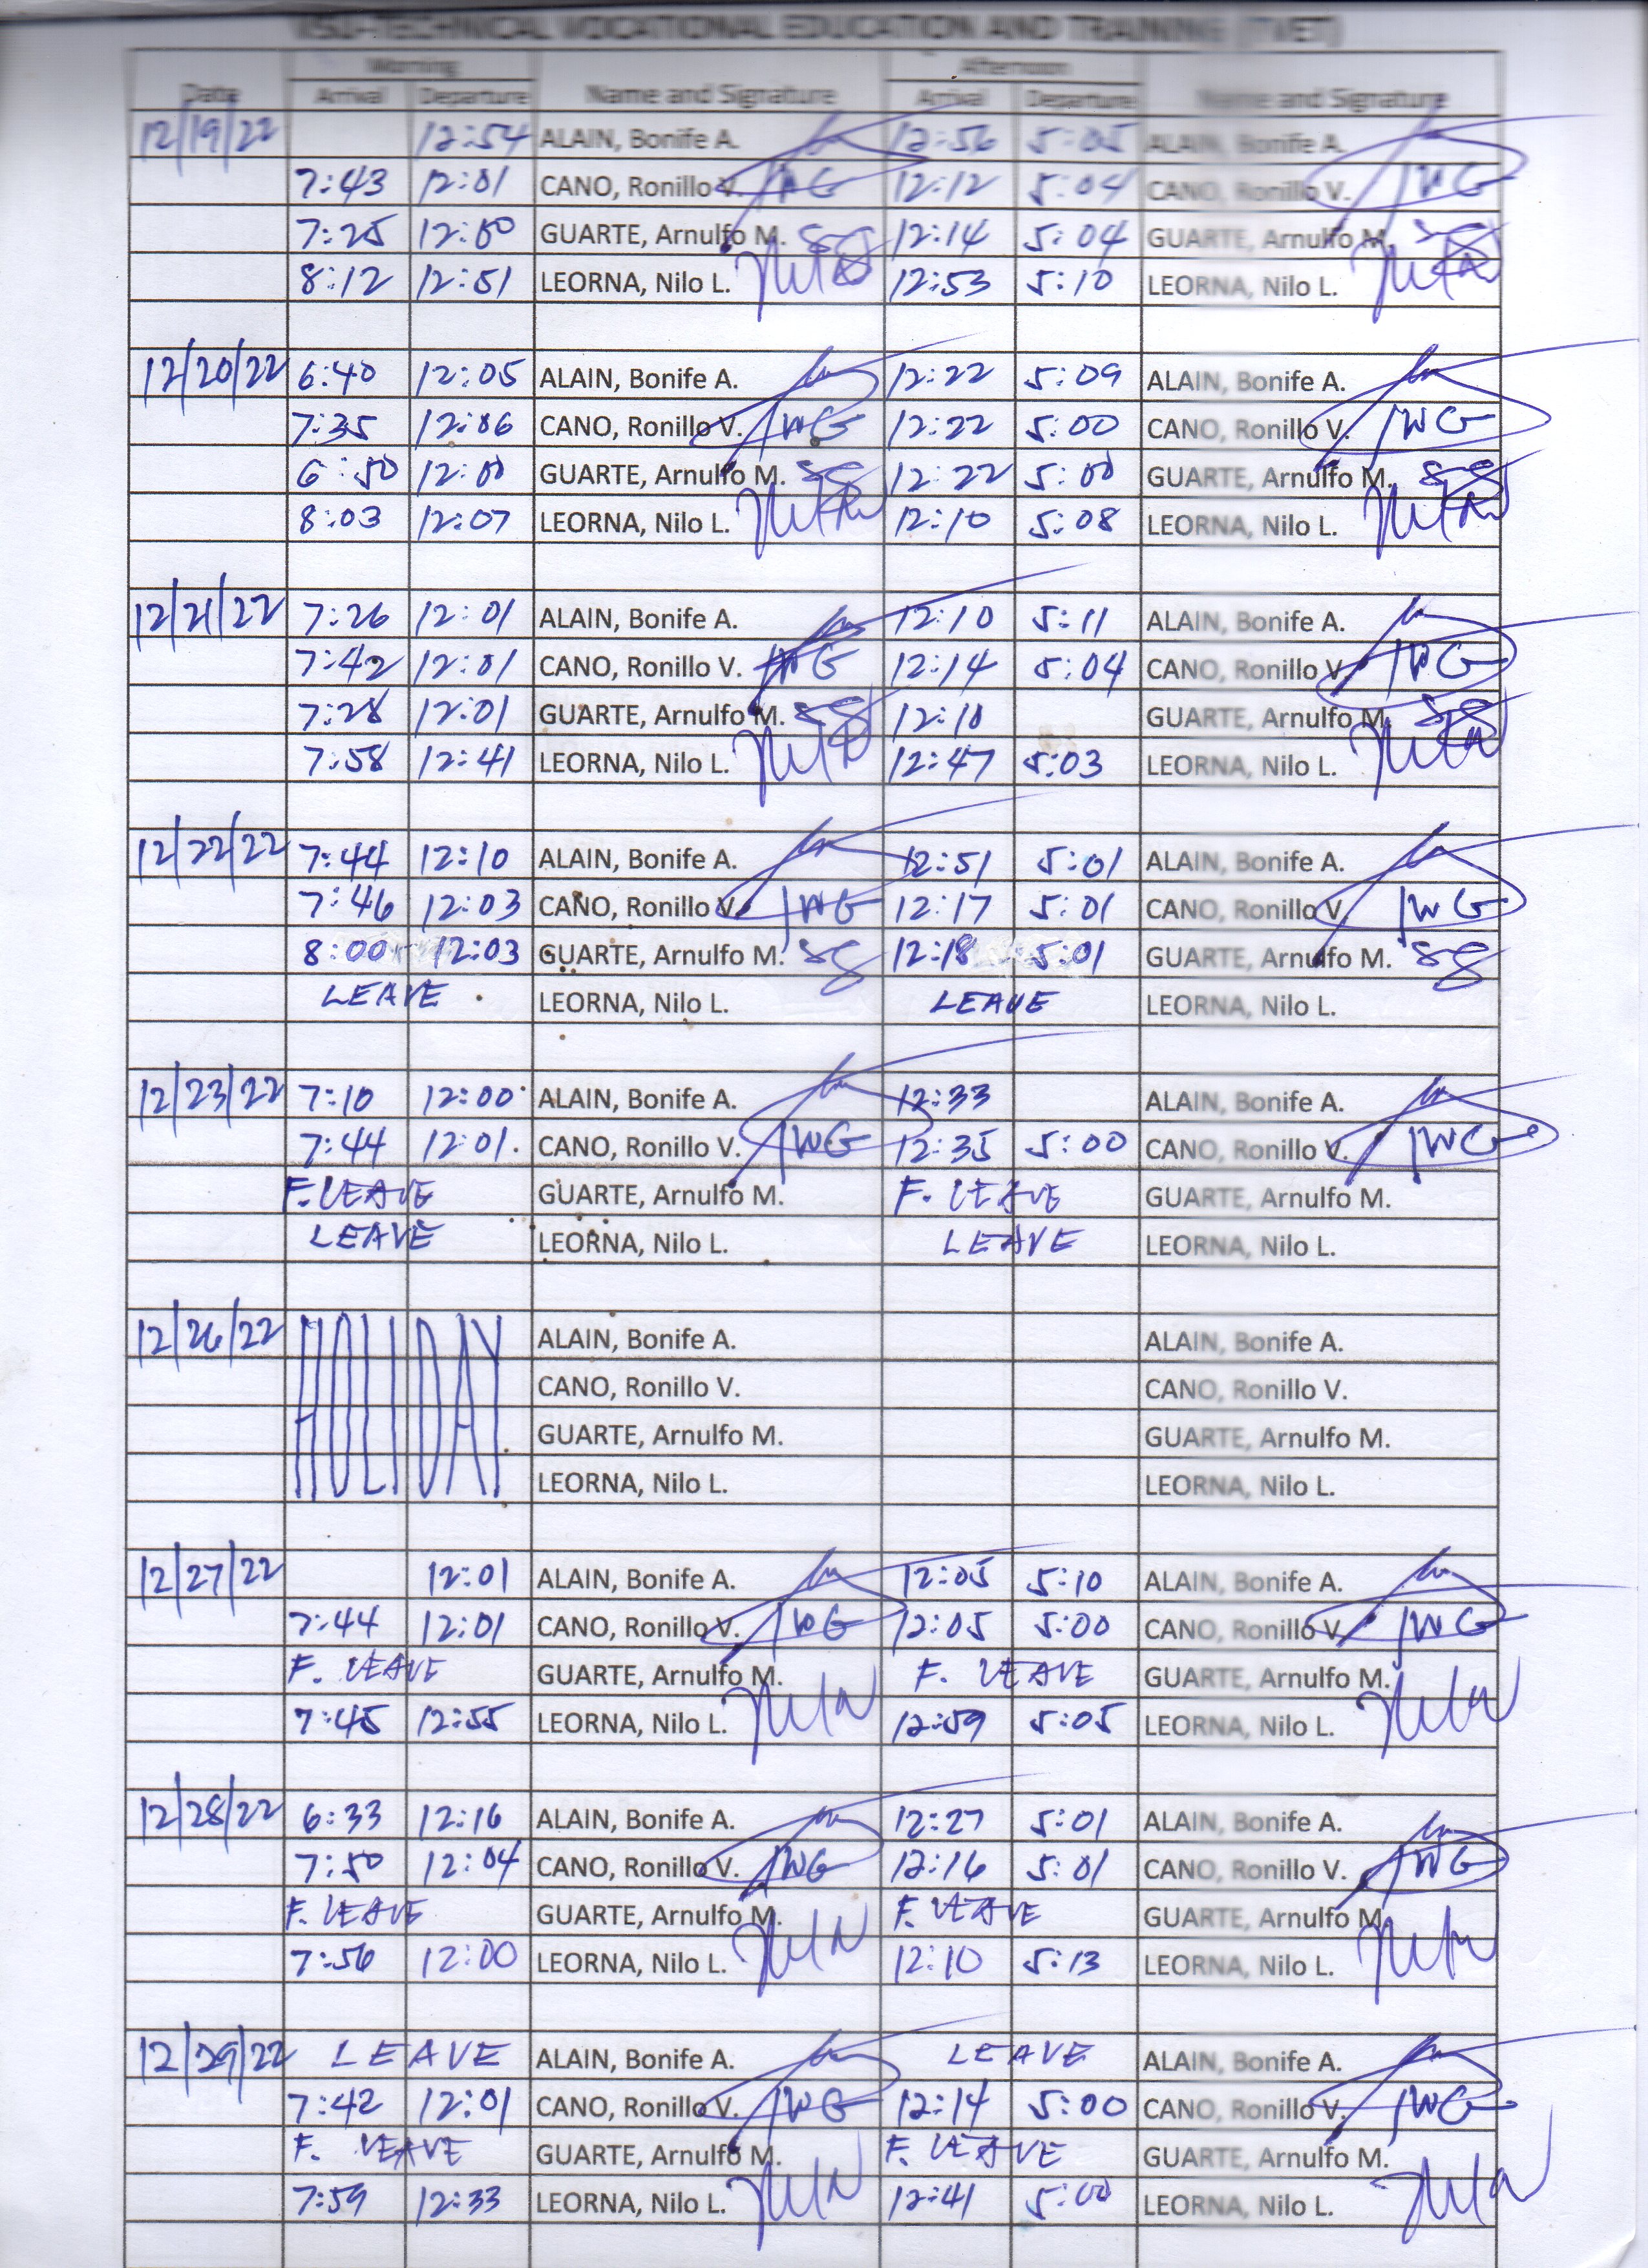 TECHNICAL VOCATIONAL EDUCATION AND TRAINING (TVET)
Morning Afternoon
Date Arrival Departure Name and Signature Arrival Departure Name and Signature
12/19/22 12:54 ALAIN, Bonife A. 12:56 5:05 ALAIN, Bonife A.
7:43 12:01 CANO, Ronillo V. JWG 12:12 5:04 CANO, Ronillo V. JWG
7:25 12:00 GUARTE, Arnulfo M. 12:14 5:04 GUARTE, Arnulfo M.
8:12 12:51 LEORNA, Nilo L. 12:53 5:10 LEORNA, Nilo L.
12/20/22 6:40 12:05 ALAIN, Bonife A. 12:22 5:09 ALAIN, Bonife A.
7:35 12:06 CANO, Ronillo V. JWG 12:22 5:00 CANO, Ronillo V. JWG
6:50 12:00 GUARTE, Arnulfo M. 12:22 5:00 GUARTE, Arnulfo M.
8:03 12:07 LEORNA, Nilo L. 12:10 5:08 LEORNA, Nilo L.
12/21/22 7:26 12:01 ALAIN, Bonife A. 12:10 5:11 ALAIN, Bonife A.
7:42 12:01 CANO, Ronillo V. JWG 12:14 5:04 CANO, Ronillo V. JWG
7:28 12:01 GUARTE, Arnulfo M. 12:10 GUARTE, Arnulfo M.
7:58 12:41 LEORNA, Nilo L. 12:47 5:03 LEORNA, Nilo L.
12/22/22 7:44 12:10 ALAIN, Bonife A. 12:51 5:01 ALAIN, Bonife A.
7:46 12:03 CANO, Ronillo V. JWG 12:17 5:01 CANO, Ronillo V. JWG
8:00 12:03 GUARTE, Arnulfo M. 12:18 5:01 GUARTE, Arnulfo M.
LEAVE LEORNA, Nilo L. LEAVE LEORNA, Nilo L.
12/23/22 7:10 12:00 ALAIN, Bonife A. 12:33 ALAIN, Bonife A.
7:44 12:01 CANO, Ronillo V. JWG 12:35 5:00 CANO, Ronillo V. JWG
F. LEAVE GUARTE, Arnulfo M. F. LEAVE GUARTE, Arnulfo M.
LEAVE LEORNA, Nilo L. LEAVE LEORNA, Nilo L.
12/26/22 HOLIDAY ALAIN, Bonife A. ALAIN, Bonife A.
CANO, Ronillo V. CANO, Ronillo V.
GUARTE, Arnulfo M. GUARTE, Arnulfo M.
LEORNA, Nilo L. LEORNA, Nilo L.
12/27/22 12:01 ALAIN, Bonife A. 12:05 5:10 ALAIN, Bonife A.
7:44 12:01 CANO, Ronillo V. JWG 12:05 5:00 CANO, Ronillo V. JWG
F. LEAVE GUARTE, Arnulfo M. F. LEAVE GUARTE, Arnulfo M.
7:45 12:55 LEORNA, Nilo L. 12:59 5:05 LEORNA, Nilo L.
12/28/22 6:33 12:16 ALAIN, Bonife A. 12:27 5:01 ALAIN, Bonife A.
7:50 12:04 CANO, Ronillo V. JWG 12:16 5:01 CANO, Ronillo V. JWG
F. LEAVE GUARTE, Arnulfo M. F. LEAVE GUARTE, Arnulfo M.
7:56 12:00 LEORNA, Nilo L. 12:10 5:13 LEORNA, Nilo L.
12/29/22 LEAVE ALAIN, Bonife A. LEAVE ALAIN, Bonife A.
7:42 12:01 CANO, Ronillo V. JWG 12:14 5:00 CANO, Ronillo V. JWG
F. LEAVE GUARTE, Arnulfo M. F. LEAVE GUARTE, Arnulfo M.
7:59 12:33 LEORNA, Nilo L. 12:41 5:00 LEORNA, Nilo L.